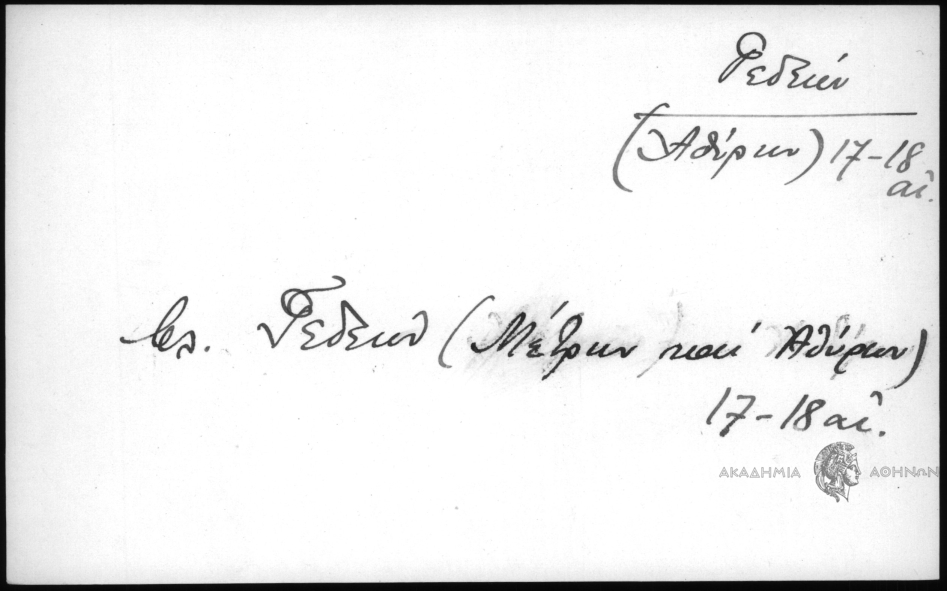 Γεδεών
(Αθύρων) 17-18
αἰ.
βλ. Γεδεών (Μέτρων καί Αθύρων)
17-18 αἰ.
ΑΚΑΔΗΜΙΑ ΑΘΗΝΩΝ